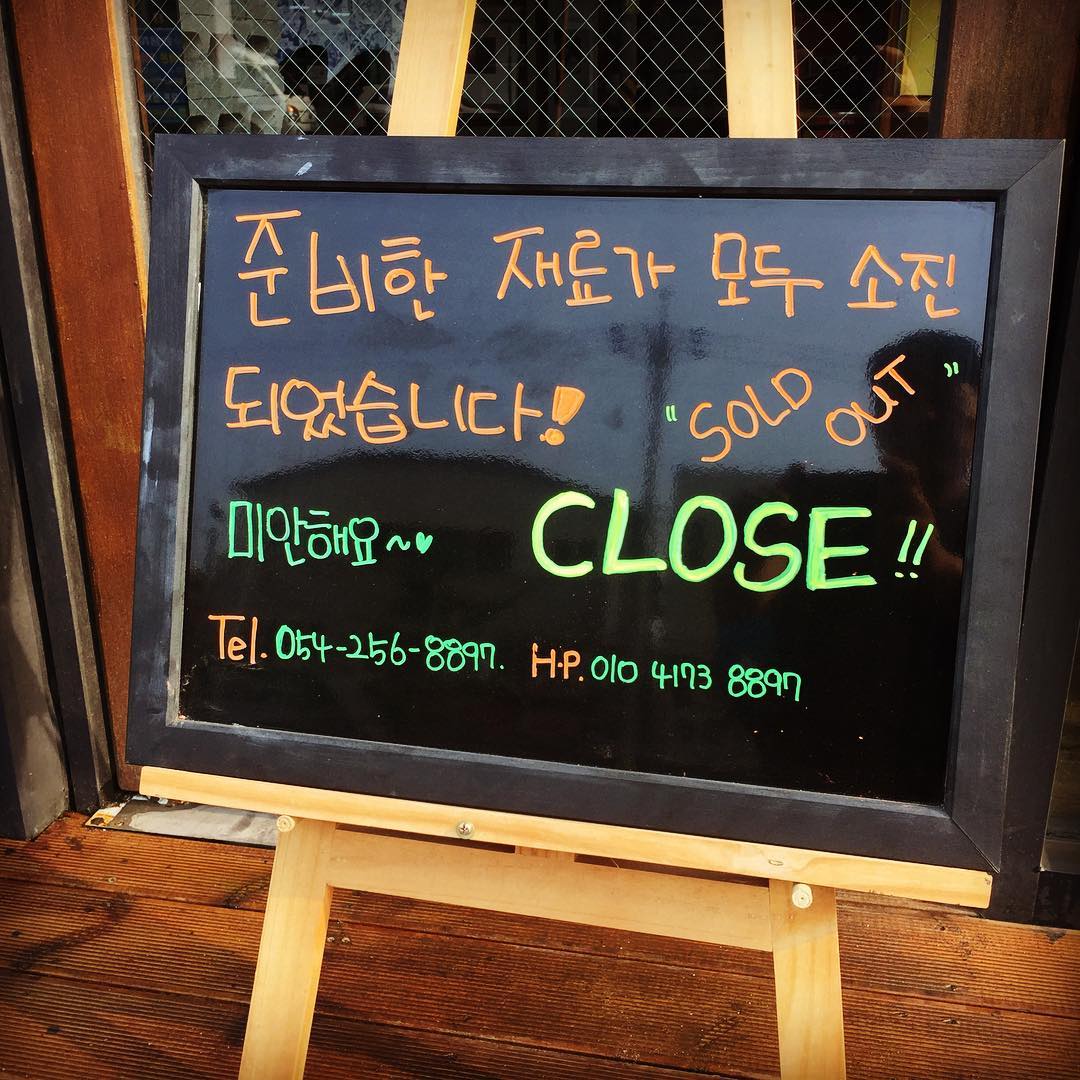 준비한 재료가 모두 소진
되었습니다! "SOLD OUT"
미안해요~♥ CLOSE!!
Tel. 054-256-8897. H·P. 010 4173 8897